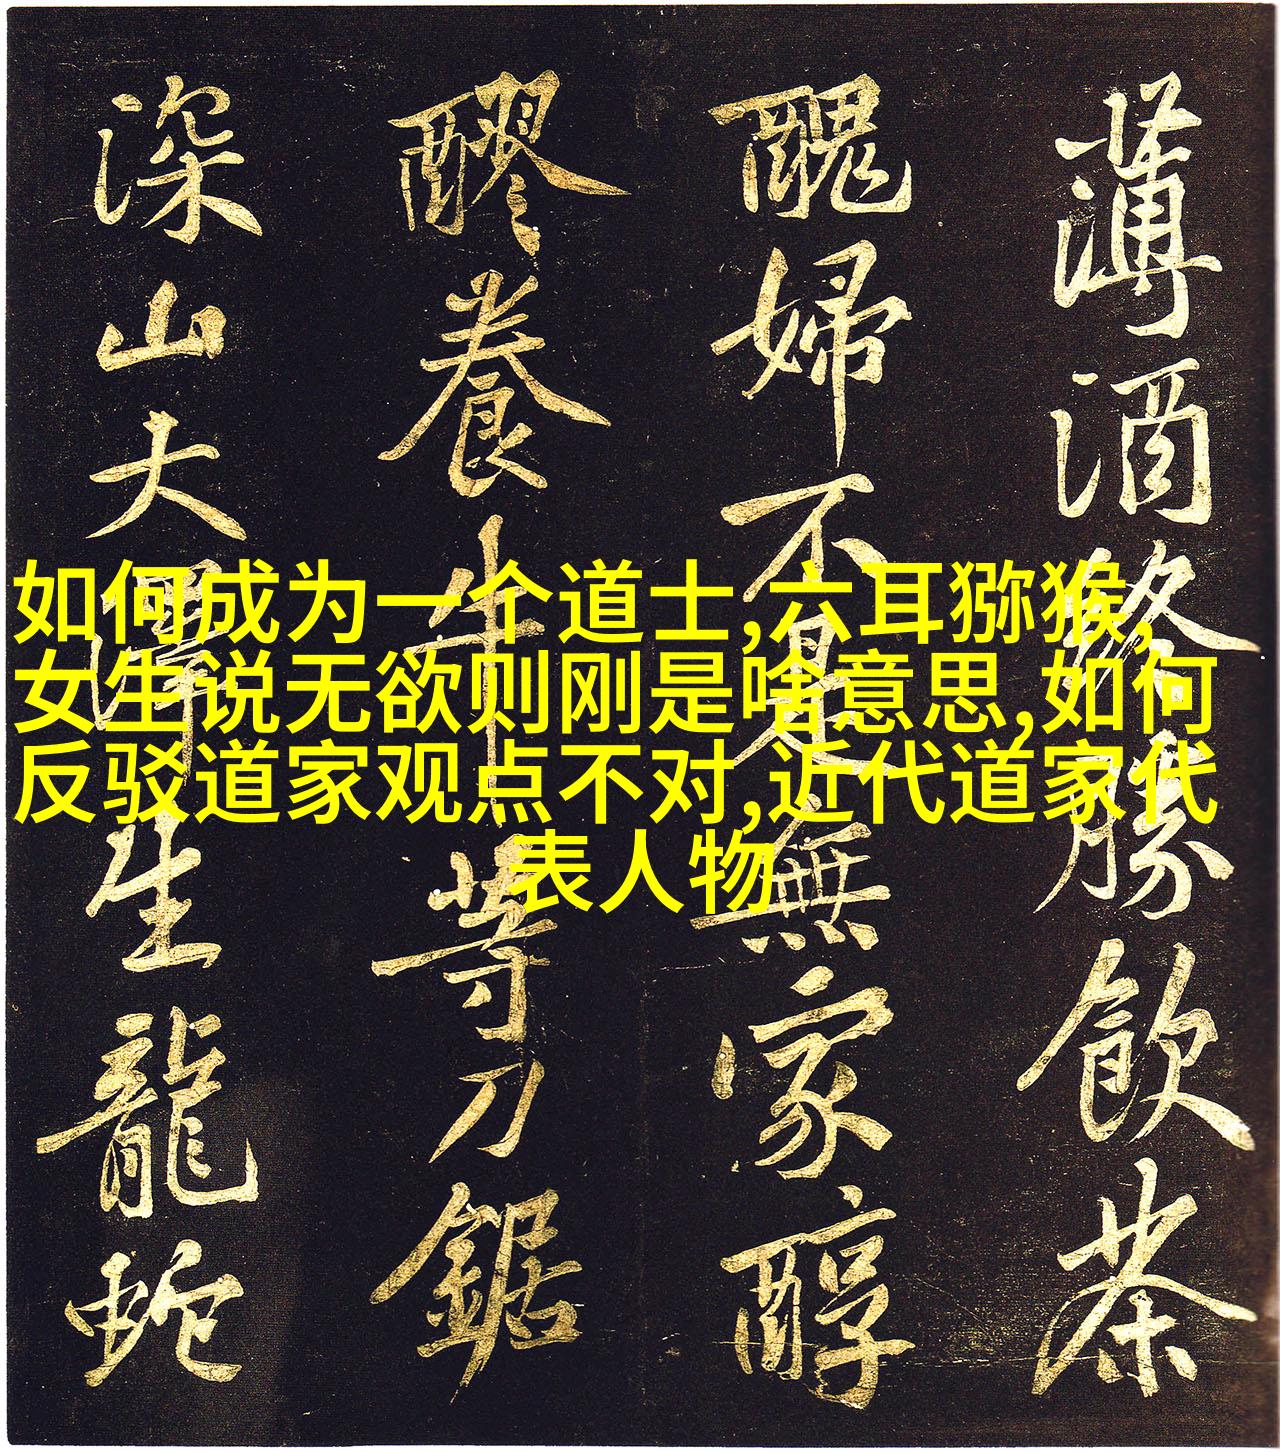 如何成为一个道士,六耳猕猴,
女生说无欲则刚是啥意思,如何
反驳道家观点不对,近代道家代
表人物
薄酒終勝飲茶
醜婦不是無家醇
醪養牛等刀鋸
深山大澤生龍蛇